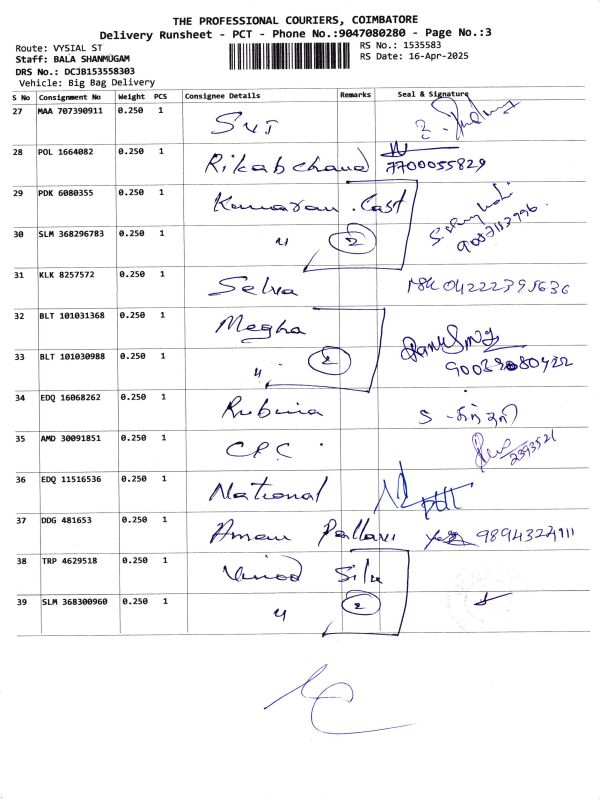 THE PROFESSIONAL COURIERS, COIMBATORE
Delivery Runsheet - PCT - Phone No.:9047080280 - Page No.:3
Route: VYSIAL ST
Staff: BALA SHANMUGAM
DRS No.: DCJB153558303
Vehicle: Big Bag Delivery
RS No.: 1535583
RS Date: 16-Apr-2025
S No Consignment No Weight PCS Consignee Details Remarks Seal & Signature
27 MAA 707390911 0.250 1 Sri
28 POL 1664082 0.250 1 Rikabchand 7700055829
29 PDK 6080355 0.250 1 Kumaran Cast
30 SLM 368296783 0.250 1 " 2
31 KLK 8257572 0.250 1 Selva
32 BLT 101031368 0.250 1 Megha
33 BLT 101030988 0.250 1 " 2
34 EDQ 16068262 0.250 1 Rubina
35 AMD 30091851 0.250 1 CPC 2393521
36 EDQ 11516536 0.250 1 National
37 DDG 481653 0.250 1 Aman Pallavi
38 TRP 4629518 0.250 1 Vinod Silk
39 SLM 368300960 0.250 1 " 2